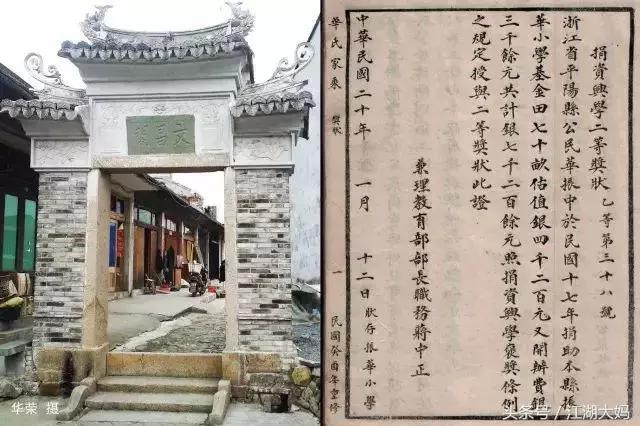 捐資興學二等獎狀 乙等第三十八號
浙江省平陽縣公民華振中於民國十七年捐助本縣振
華小學基金田七十畝估值銀四千二百元又開辦費銀
三千餘元共計銀七千二百餘元照捐資興學褒獎條例
之規定授與二等獎狀此證
兼理教育部部長職務蔣中正
中華民國二十年 一月 十二日 狀存振華小學
華氏家乘 獎狀 一 民國癸酉年重修
华荣 摄
头条号/江湖大妈